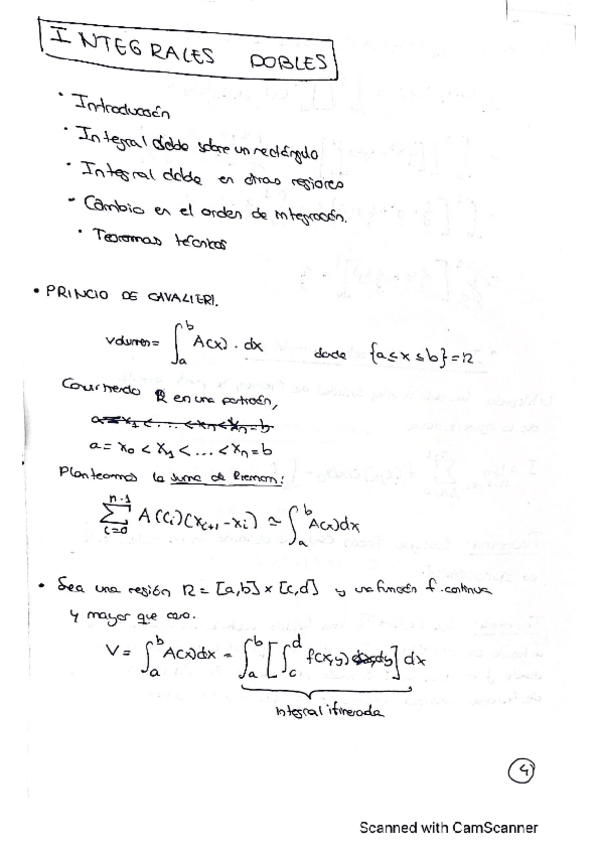 INTEGRALES DOBLES
• Introducción
• Integral doble sobre un rectángulo
• Integral doble en otras regiones
- Cambio en el orden de integración.
• Teoremas técnicos
• PRINCIO DE CAVALIERI.
Volumen = ∫_a^b A(x) · dx donde {a ≤ x ≤ b} = R
R en una partición,
a = x₁ < ... < xₙ < xₙ = b
a = x₀ < x₁ < ... < xₙ = b
Planteamos la suma de Riemann:
∑_{i=0}^{n-1} A(Ci)(x_{i+1} - xi) ≃ ∫_a^b A(x)dx
• Sea una región R = [a,b] x [c,d] y una función f. continua
y mayor que cero.
V = ∫_a^b A(x)dx = ∫_a^b [∫_c^d f(x,y) dy] dx
integral itinerada
4
Scanned with CamScanner